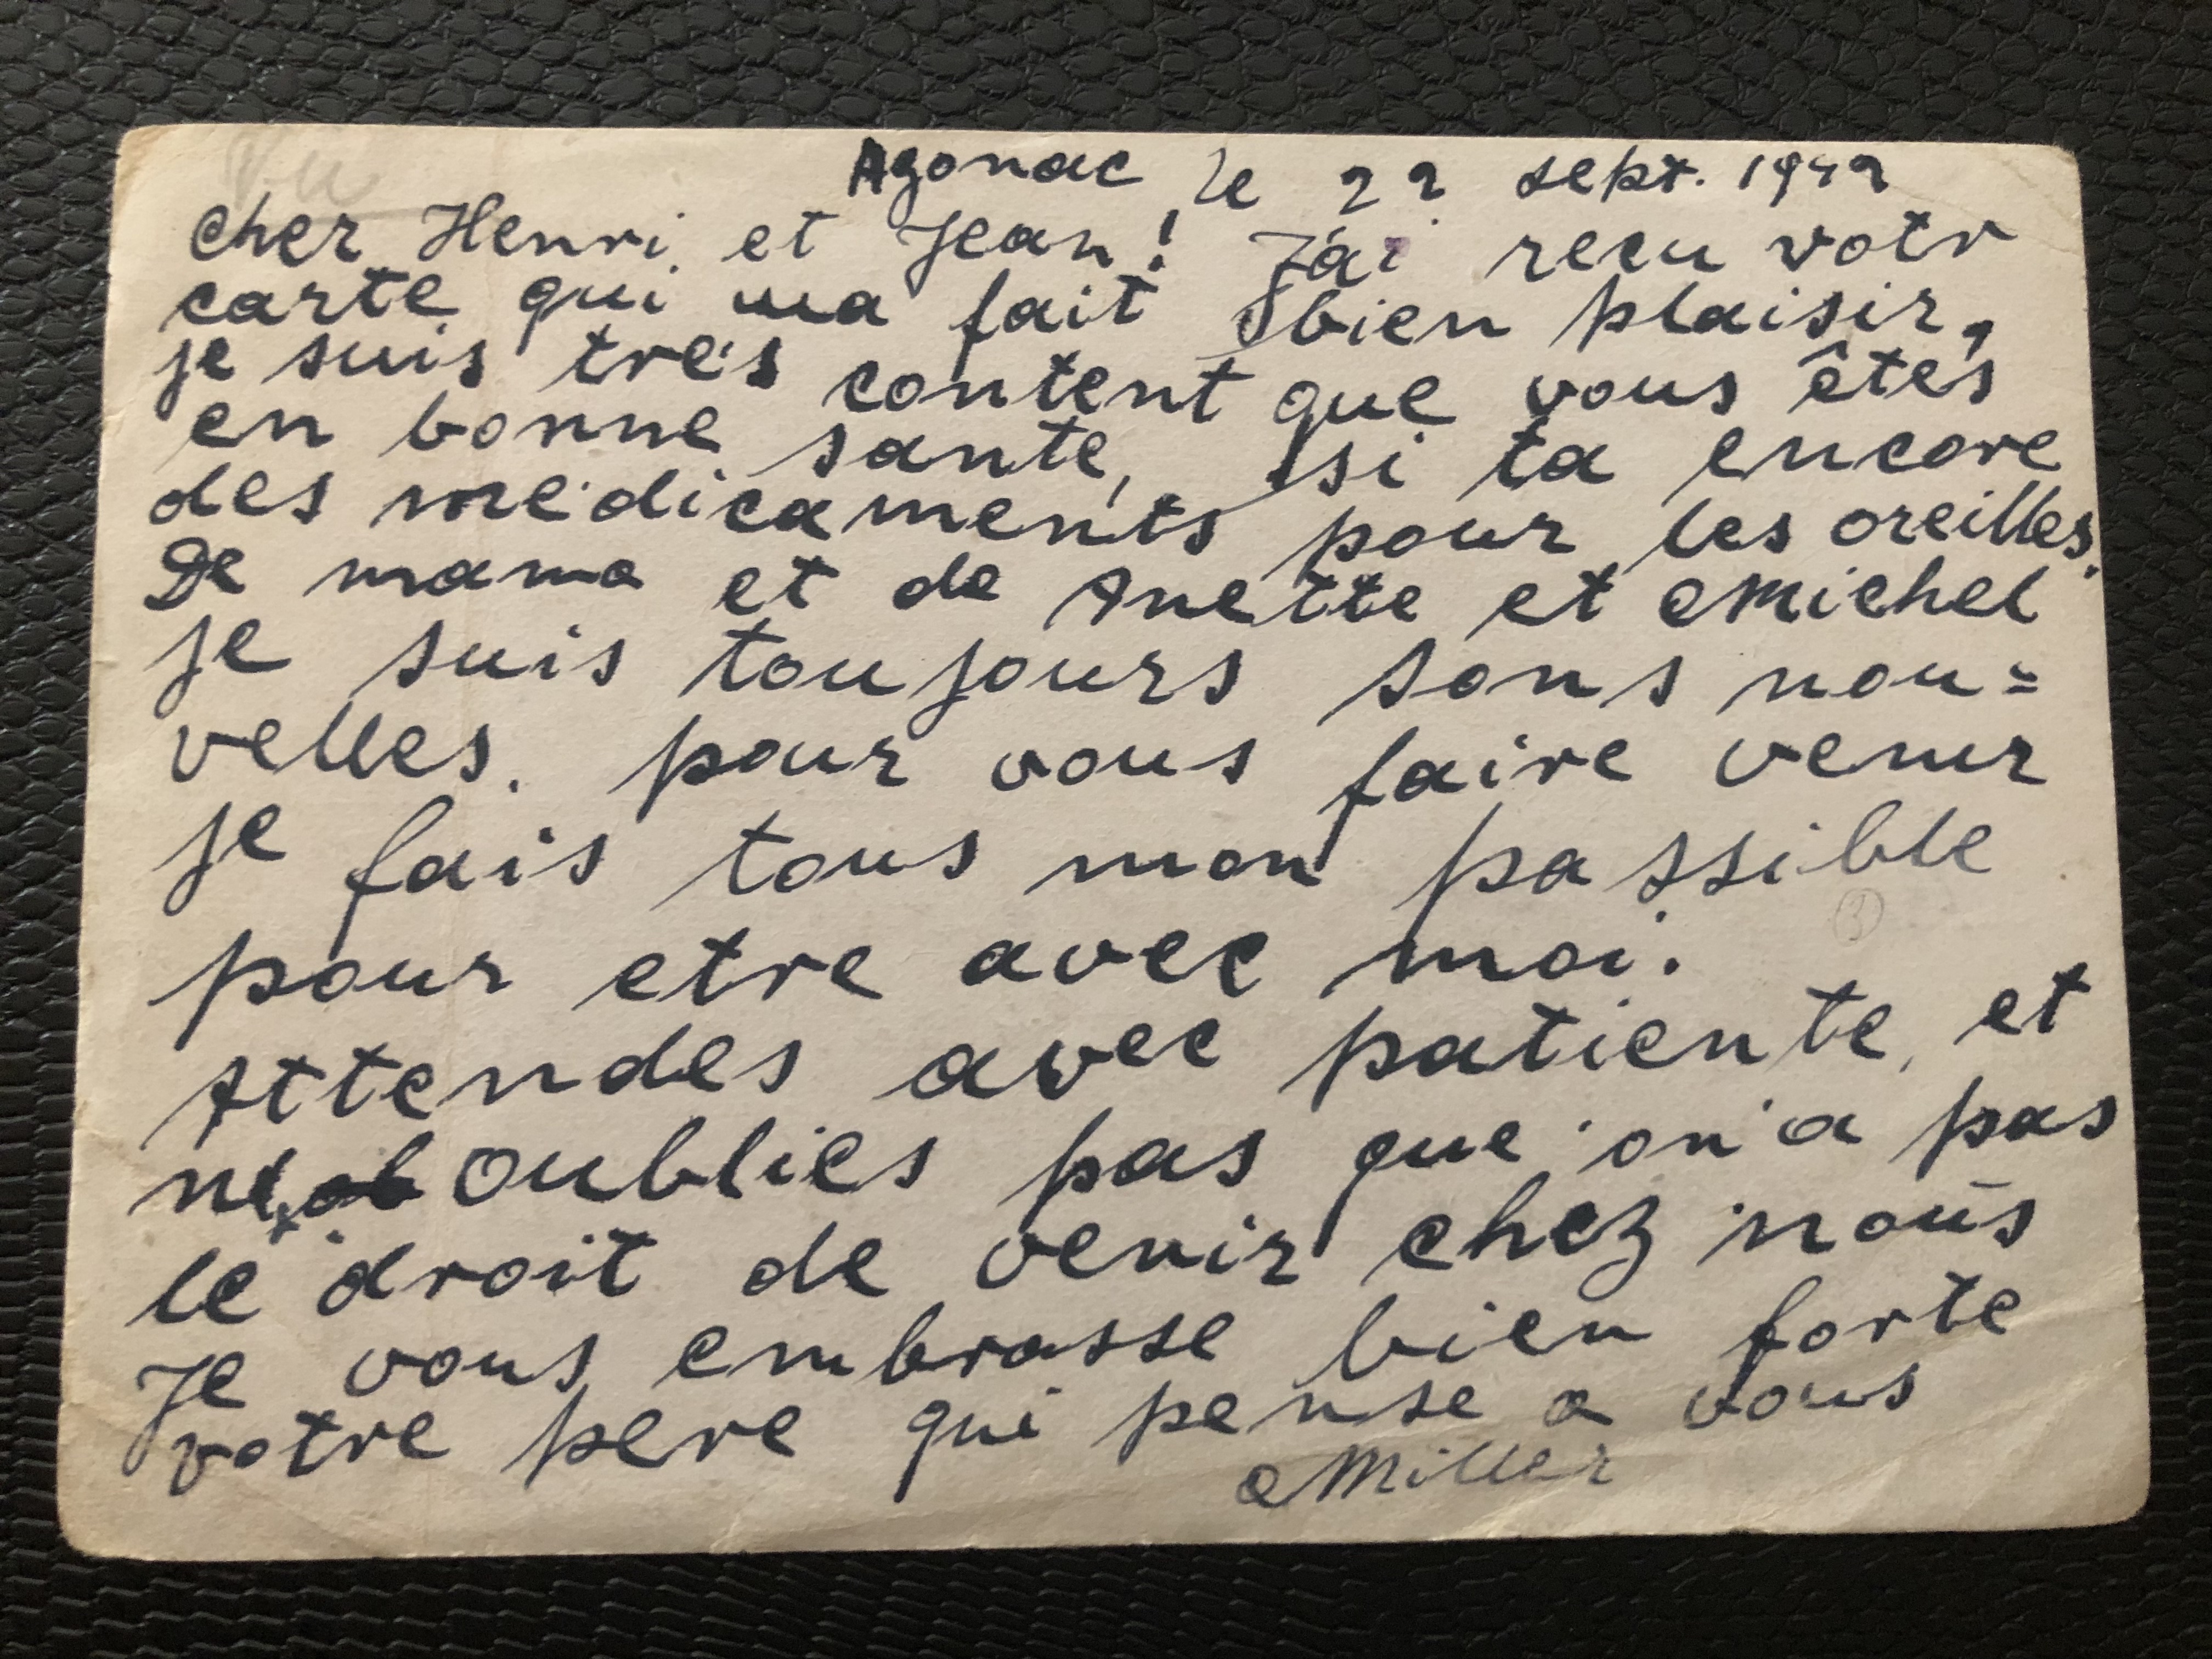 Vu
Agonac le 22 sept. 1942
cher Henri et Jean! J'ai recu votr
carte qui ma fait bien plaisir,
je suis très content que vous êtes
en bonne sante, si ta encore
des médicaments pour les oreilles.
De mama et de Anette et Michel
je suis toujours sans nou=
velles. pour vous faire venir
je fais tous mon possible
③
pour etre avec moi.
Attendes avec patiente, et
ne oublies pas que on a pas
le droit de venir chez nous
Je vous embrasse bien forte
votre pere qui pense a vous
Miller